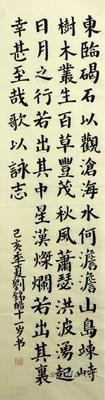 東臨碣石以觀滄海水何澹澹山島竦峙
樹木叢生百草豐茂秋風蕭瑟洪波湧起
日月之行若出其中星漢燦爛若出其裏
幸甚至哉歌以詠志
己亥季夏劉銘皓十一岁书